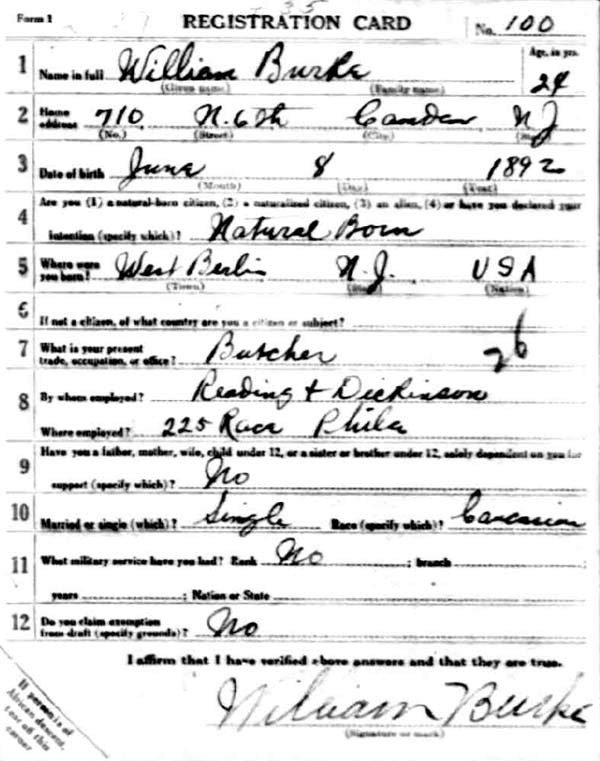 Form 1 REGISTRATION CARD No. 100
1 Name in full William Burke Age, in yrs. 24
(Given name) (Family name)
2 Home address 710 N. 6th Camden N J
(No.) (Street) (City) (State)
3 Date of birth June 8 1892
(Month) (Day) (Year)
Are you (1) a natural-born citizen, (2) a naturalized citizen, (3) an alien, (4) or have you declared your
4 intention (specify which)? Natural Born
5 Where were you born? West Berlin N.J. USA
(Town) (State) (Nation)
6 If not a citizen, of what country are you a citizen or subject?
7 What is your present trade, occupation, or office? Butcher 26
8 By whom employed? Reading & Dickinson
Where employed? 225 Race Phila
9 Have you a father, mother, wife, child under 12, or a sister or brother under 12, solely dependent on you for
support (specify which)? No
10 Married or single (which)? Single Race (specify which)? Caucasian
11 What military service have you had? Rank No ; branch ;
years ; Nation or State
12 Do you claim exemption from draft (specify grounds)? No
I affirm that I have verified above answers and that they are true.
William Burke
(Signature or mark)
If person is of
African descent,
tear off this
corner